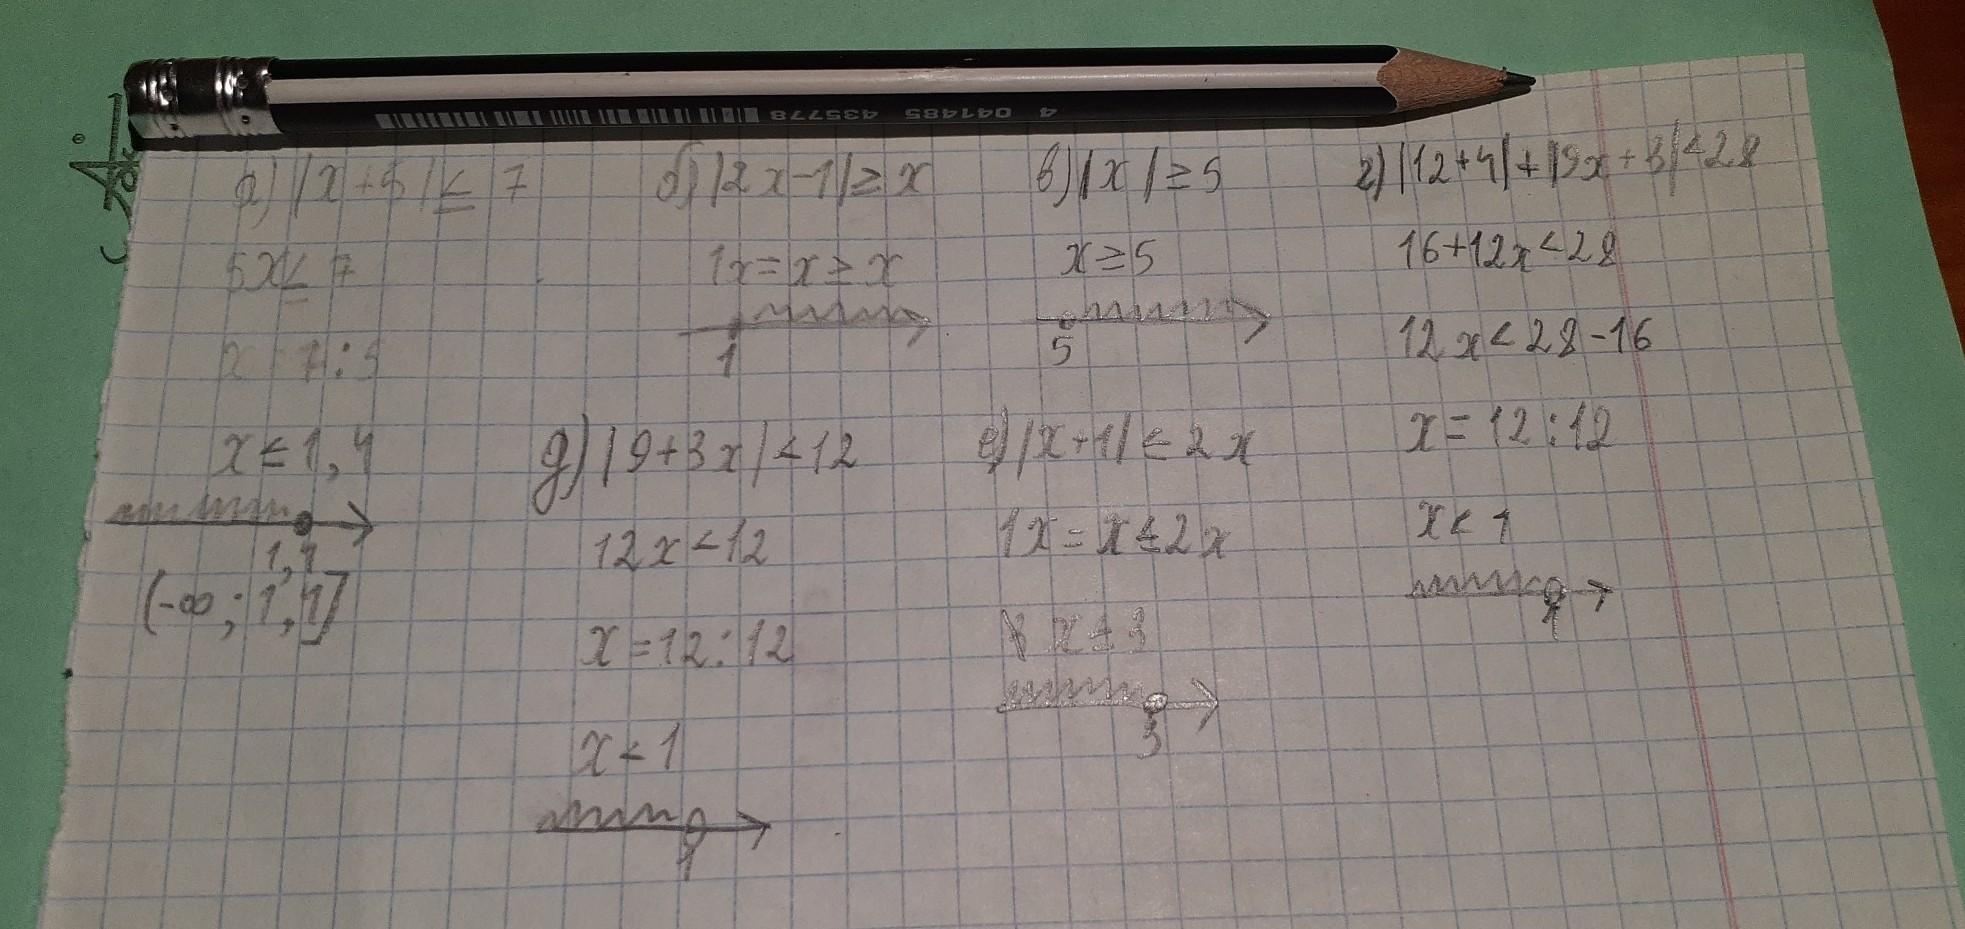 4 041485 435778
а) |x+5| ≤ 7
5x ≤ 7
x 7:5
x ≤ 1,4
1,4
(-∞; 1,4]
б) |2x-1| ≥ x
1x = x ≥ x
1
в) |x| ≥ 5
x ≥ 5
5
г) |12+4|+|9x+3|<28
16+12x<28
12x<28-16
x=12:12
x<1
1
д) |9+3x|<12
12x<12
x=12:12
x<1
1
е) |x+1| ≤ 2x
1x = x ≤ 2x
x ≤ 3
3